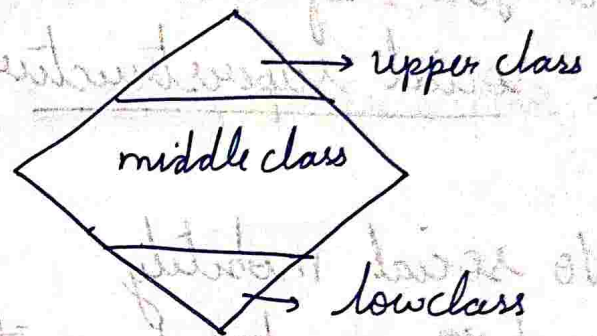 upper class
middle class
low class